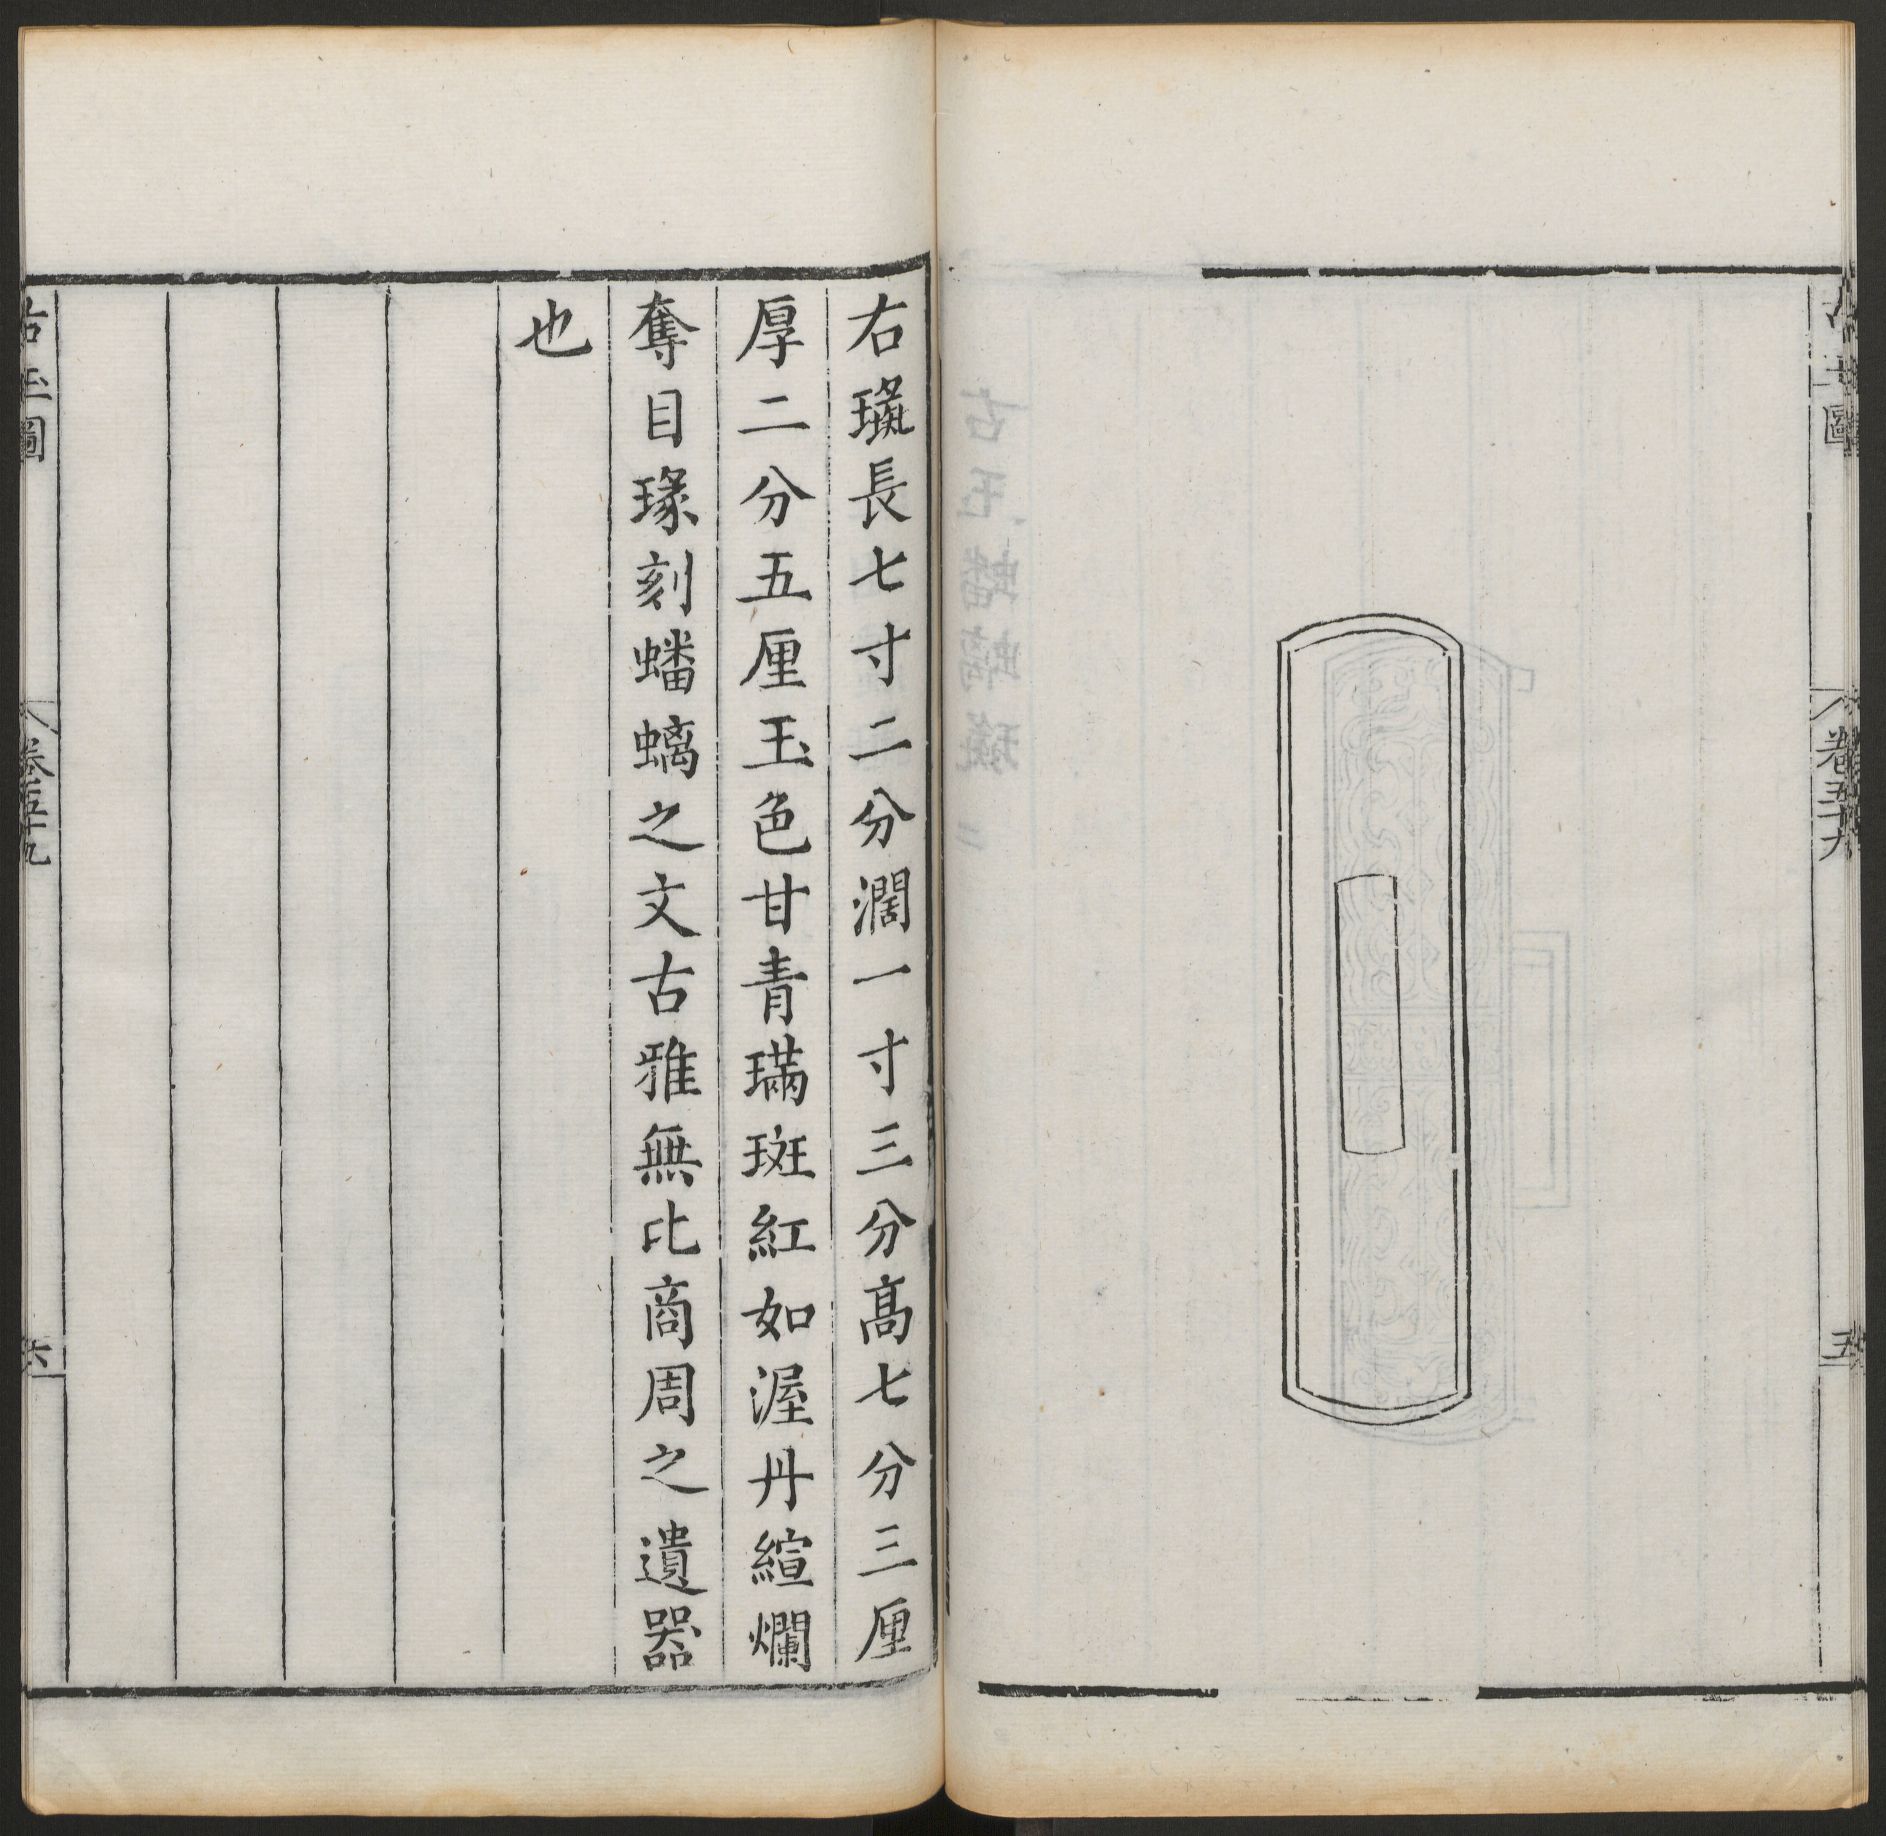 右璏長七寸二分濶一寸三分高七分三厘
厚二分五厘玉色甘青璊斑紅如渥丹縇爛
奪目瑑刻蟠螭之文古雅無比商周之遺器
也
古玉圖
卷五十九
五
古玉圖
卷五十九
六